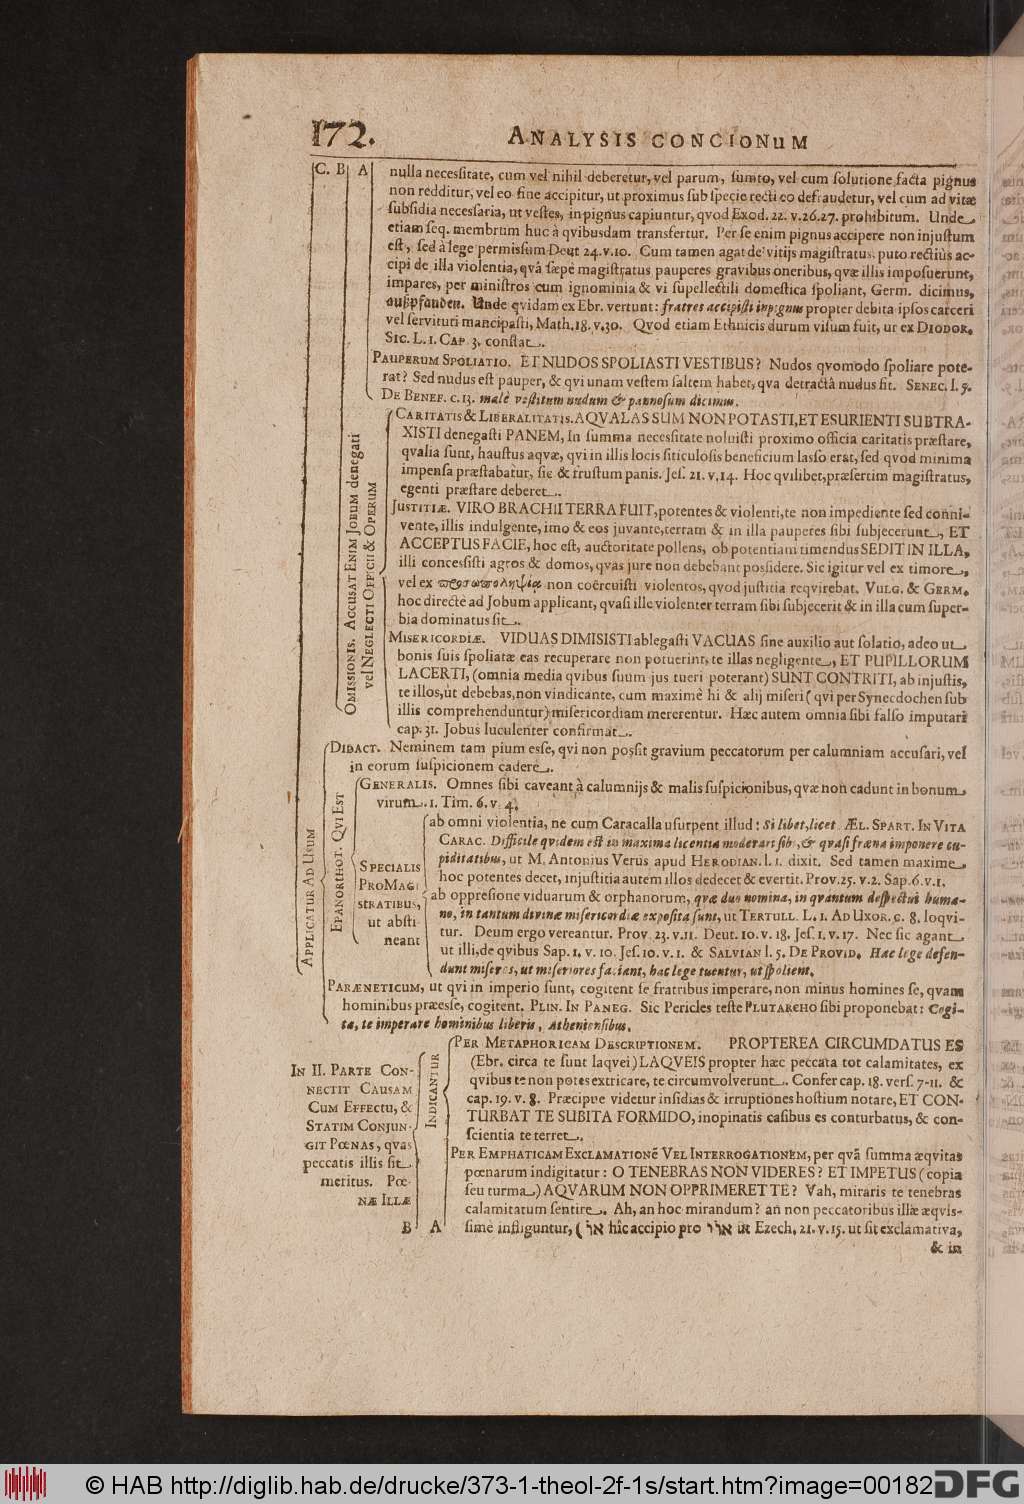 172. ANALYSIS CONCIONuM
C. B A nulla necesſitate, cum vel nihil deberetur, vel parum, ſumto, vel cum ſolutione facta pignus
non redditur, vel eo fine accipitur, ut proximus ſub ſpecie recti eo defraudetur, vel cum ad vitæ
ſubſidia neceſſaria, ut veſtes, in pignus capiuntur, qvod Exod. 22. v. 26. 27. prohibitum. Unde
etiam ſeq. membrum huc à qvibusdam transfertur. Per ſe enim pignus accipere non injuſtum
eſt, ſed à lege permiſſum Deut 24. v. 10. Cum tamen agat de vitijs magiſtratus: puto rectiùs ac-
cipi de illa violentia, qvâ ſæpè magiſtratus pauperes gravibus oneribus, qvæ illis impoſuerunt,
impares, per miniſtros cum ignominia & vi ſupellectili domeſtica ſpoliant, Germ. dicimus,
außpfanden. Unde qvidam ex Ebr. vertunt: fratres accipiſti in pignus propter debita ipſos carceri
vel ſervituti mancipaſti, Math. 18. v. 30. Qvod etiam Ethnicis durum viſum fuit, ur ex DIODOR.
SIC. L. 1. CAP. 3. conſtat.
PAUPERUM SPOLIATIO. ET NUDOS SPOLIASTI VESTIBUS? Nudos qvomodo ſpoliare pote-
rat? Sed nudus eſt pauper, & qvi unam veſtem ſaltem habet, qva detractâ nudus ſit. SENEC. l. 5.
DE BENEF. c. 13. malè veſtitum nudum & pannoſum dicimus.
OMISSIONIS. ACCUSAT ENIM JOBUM denegati
vel NEGLECTI OFFICII & OPERUM
CARITATIS & LIBERALITATIS. AQVA LASSUM NON POTASTI, ET ESURIENTI SUBTRA-
XISTI denegaſti PANEM, In ſumma necesſitate noluiſti proximo officia caritatis præſtare,
qvalia ſunt, hauſtus aqvæ, qvi in illis locis ſiticuloſis beneficium laſſo erat, ſed qvod minima
impenſa præſtabatur, ſic & fruſtum panis. Jeſ. 21. v. 14. Hoc qvilibet, præſertim magiſtratus,
egenti præſtare deberet.
JUSTITIÆ. VIRO BRACHII TERRA FUIT, potentes & violenti, te non impediente ſed conni-
vente, illis indulgente, imo & eos juvante, terram & in illa pauperes ſibi ſubjecerunt, ET
ACCEPTUS FACIE, hoc eſt, auctoritate pollens, ob potentiam timendus SEDIT IN ILLA,
illi conceſſiſti agros & domos, qvas jure non debebant posſidere. Sic igitur vel ex timore,
vel ex προσωποληψίᾳ non coërcuiſti violentos, qvod juſtitia reqvirebat. VULG. & GERM.
hoc directè ad Jobum applicant, qvaſi ille violenter terram ſibi ſubjecerit & in illa cum ſuper-
bia dominatus ſit.
MISERICORDIÆ. VIDUAS DIMISISTI ablegaſti VACUAS ſine auxilio aut ſolatio, adeo ut
bonis ſuis ſpoliatæ eas recuperare non potuerint, te illas negligente, ET PUPILLORUM
LACERTI, (omnia media qvibus ſuum jus tueri poterant) SUNT CONTRITI, ab injuſtis,
te illos, ut debebas, non vindicante, cum maximè hi & alij miſeri (qvi per Synecdochen ſub
illis comprehenduntur) miſericordiam mererentur. Hæc autem omnia ſibi falſo imputari
cap. 31. Jobus luculenter confirmat.
APPLICATUR AD USUM
DIDACT. Neminem tam pium esſe, qvi non posſit gravium peccatorum per calumniam accuſari, vel
in eorum ſuſpicionem cadere.
EPANORTHOT. QVI EST
GENERALIS. Omnes ſibi caveant à calumnijs & malis ſuſpicionibus, qvæ non cadunt in bonum
virum. 1. Tim. 6. v. 4.
SPECIALIS
PRO MAGI-
STRATIBUS,
ut abſti-
neant
ab omni violentia, ne cum Caracalla uſurpent illud: Si libet, licet. ÆL. SPART. IN VITA
CARAC. Difficile qvidem eſt in maxima licentia moderari ſibi, & qvaſi fræna imponere cu-
piditatibus, ut M. Antonius Verus apud HERODIAN. l. 1. dixit. Sed tamen maxime
hoc potentes decet, injuſtitia autem illos dedecet & evertit. Prov. 25. v. 2. Sap. 6. v. 1.
ab oppreſione viduarum & orphanorum, qvæ duo nomina, in qvantum deſpectui huma-
no, in tantum divinæ miſericordiæ expoſita ſunt, ut TERTULL. L. 1. AD UXOR. c. 8. loqvi-
tur. Deum ergo vereantur. Prov. 23. v. 11. Deut. 10. v. 18. Jeſ. 1. v. 17. Nec ſic agant
ut illi, de qvibus Sap. 1. v. 10. Jeſ. 10. v. 1. & SALVIAN l. 5. DE PROVID. Hac lege defen-
dunt miſeros, ut miſeriores faciant, hac lege tuentur, ut ſpolient.
PARÆNETICUM, ut qvi in imperio ſunt, cogitent ſe fratribus imperare, non minus homines ſe, qvam
hominibus præesſe, cogitent. PLIN. IN PANEG. Sic Pericles teſte PLUTARCHO ſibi proponebat: Cogi-
ta, te imperare hominibus liberis, Athenienſibus.
IN II. PARTE CON-
NECTIT CAUSAM
CUM EFFECTU, &
STATIM CONJUN-
GIT PŒNAS, qvas
peccatis illis ſit
meritus. PŒ-
NÆ ILLÆ
INDICANTUR
PER METAPHORICAM DESCRIPTIONEM. PROPTEREA CIRCUMDATUS ES
(Ebr. circa te ſunt laqvei) LAQVEIS propter hæc peccata tot calamitates, ex
qvibus te non potes extricare, te circumvolverunt. Confer cap. 18. verſ. 7-11. &
cap. 19. v. 8. Præcipue videtur inſidias & irruptiones hoſtium notare, ET CON-
TURBAT TE SUBITA FORMIDO, inopinatis caſibus es conturbatus, & con-
ſcientia te terret.
PER EMPHATICAM EXCLAMATIONẽ VEL INTERROGATIONEM, per qvã ſumma æqvitas
pœnarum indigitatur: O TENEBRAS NON VIDERES? ET IMPETUS (copia
ſeu turma) AQVARUM NON OPPRIMERET TE? Vah, miraris te tenebras
calamitatum ſentire. Ah, an hoc mirandum? an non peccatoribus illæ æqvis-
B A ſimè infliguntur, (או hîc accipio pro אוו ut Ezech. 21. v. 15. ut ſit exclamativa,
& in
© HAB http://diglib.hab.de/drucke/373-1-theol-2f-1s/start.htm?image=00182
DFG